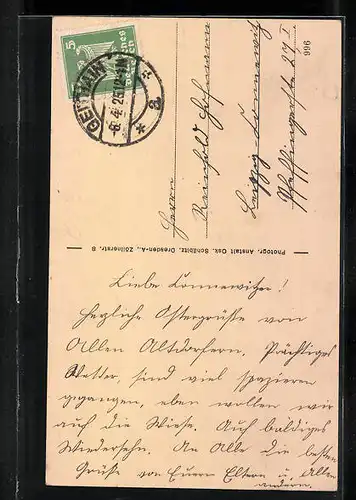 5
Deutsches Reich
GERINGSWALDE
-6.4.26.11-12V
* a *
Herrn
Reinhold Hofmann
Leipzig-Connewitz
Pfeffingerstr. 27 I
996
Photogr. Anstalt Osk. Schäbitz, Dresden-A., Zöllnerstr. 8
Liebe Connewitzer!
Herzliche Ostergrüße von
Allen Altdorfern. Prächtiges
Wetter, sind viel spazieren
gegangen, eben wollen wir
auf die Wiese. Auf baldiges
Wiedersehn. An Alle die besten
Grüße von Euern Eltern u. Allen
andern.